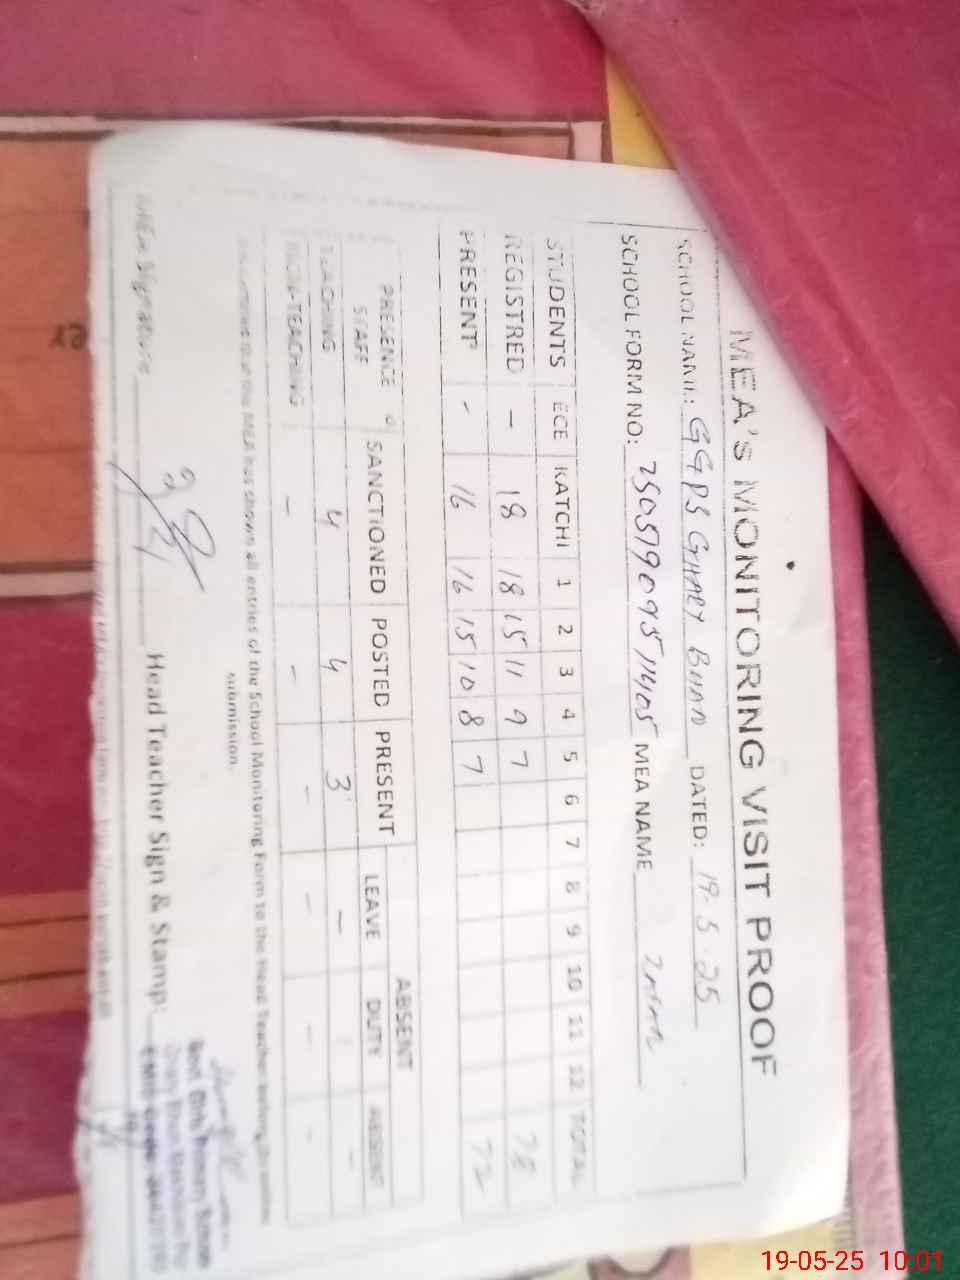 MEA'S MONITORING VISIT PROOF
SCHOOL NAME: GGPS GHARY BHAN DATED: 19-5-25
SCHOOL FORM NO: MEA NAME
STUDENTS ECE KATCHI 1 2 3 4 5 6 7 8 9 10 11 12 TOTAL
REGISTRED - 18 18 15 11 9 7 78
PRESENT - 16 16 15 10 8 7 72
PRESENCE SANCTIONED POSTED PRESENT ABSENT
STAFF LEAVE DUTY ABSENT
TEACHING 4 4 3 - - -
NON-TEACHING - - - - - -
the MEA has shown all entries of the School Monitoring Form to the Head Teacher before
submission.
MEA Signature Head Teacher Sign & Stamp:
19-05-25 10:01